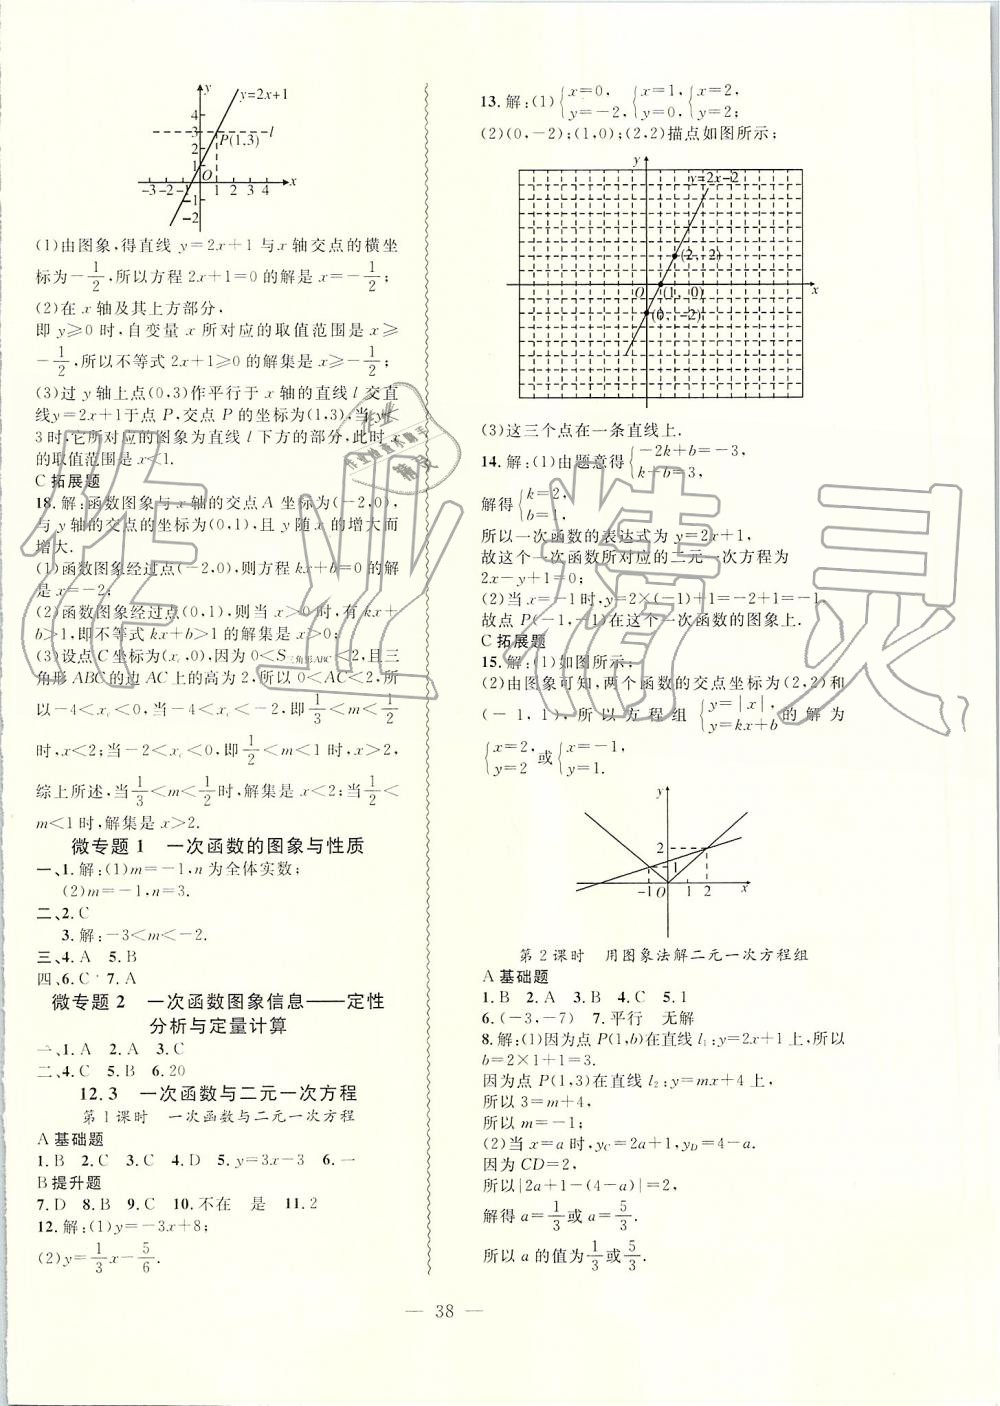 y
y=2x+1
4
3
l
2
P(1,3)
1
O
-3 -2 -1
1 2 3 4
x
-1
-2
(1)由图象,得直线 y=2x+1 与 x 轴交点的横坐
标为-1/2,所以方程 2x+1=0 的解是 x=-1/2;
(2)在 x 轴及其上方部分,
即 y≥0 时,自变量 x 所对应的取值范围是 x≥
-1/2,所以不等式 2x+1≥0 的解集是 x≥-1/2;
(3)过 y 轴上点(0,3)作平行于 x 轴的直线 l 交直
线y=2x+1于点 P,交点 P 的坐标为(1,3),当 y<
3时,它所对应的图象为直线 l 下方的部分,此时 x
的取值范围是 x<1.
C 拓展题
18.解:函数图象与 x 轴的交点 A 坐标为(-2,0),
与 y 轴的交点的坐标为(0,1),且 y 随 x 的增大而
增大.
(1)函数图象经过点(-2,0),则方程 kx+b=0 的解
是 x=-2;
(2)函数图象经过点(0,1),则当 x>0 时,有 kx+
b>1,即不等式 kx+b>1 的解集是 x>0;
(3)设点 C 坐标为(xc,0),因为 0<S三角形ABC<2,且三
角形 ABC 的边 AC 上的高为 2,所以 0<AC<2,所
以-4<xc<0,当-4<xc<-2,即1/3<m<1/2
时,x<2;当-2<xc<0,即1/2<m<1时,x>2,
综上所述,当1/3<m<1/2时,解集是 x<2;当1/2<
m<1时,解集是 x>2.
微专题 1 一次函数的图象与性质
一、1.解:(1)m=-1,n 为全体实数;
(2)m=-1,n=3.
二、2.C
3.解:-3<m<-2.
三、4.A 5.B
四、6.C 7.A
微专题 2 一次函数图象信息——定性
分析与定量计算
一、1.A 2.A 3.C
二、4.C 5.B 6.20
12.3 一次函数与二元一次方程
第1课时 一次函数与二元一次方程
A 基础题
1.B 2.C 3.C 4.D 5.y=3x-3 6.一
B 提升题
7.D 8.B 9.C 10.不在 是 11.2
12.解:(1)y=-3x+8;
(2)y=1/3x-5/6.
13.解:(1){x=0, y=-2, {x=1, y=0, {x=2, y=2;
(2)(0,-2);(1,0);(2,2)描点如图所示;
y
y=2x-2
(2, 2)
O
(1, 0)
x
(0, -2)
(3)这三个点在一条直线上.
14.解:(1)由题意得{-2k+b=-3, k+b=3,
解得{k=2, b=1,
所以一次函数的表达式为 y=2x+1,
故这个一次函数所对应的二元一次方程为
2x-y+1=0;
(2)当 x=-1时,y=2×(-1)+1=-2+1=-1,
故点 P(-1,-1)在这个一次函数的图象上.
C 拓展题
15.解:(1)如图所示;
(2)由图象可知,两个函数的交点坐标为(2,2)和
(-1,1),所以方程组{y=|x|, y=kx+b的解为
{x=2, y=2或{x=-1, y=1.
y
2
1
-1 O 1 2
x
第2课时 用图象法解二元一次方程组
A 基础题
1.B 2.A 3.B 4.C 5.1
6.(-3,-7) 7.平行 无解
8.解:(1)因为点 P(1,b)在直线 l₁:y=2x+1上,所以
b=2×1+1=3.
因为点 P(1,3)在直线 l₂:y=mx+4上,
所以 3=m+4,
所以 m=-1;
(2)当 x=a 时,yC=2a+1,yD=4-a.
因为 CD=2,
所以|2a+1-(4-a)|=2,
解得 a=1/3或 a=5/3.
所以 a 的值为1/3或5/3.
— 38 —
作业精灵
作业检查小助手
精灵